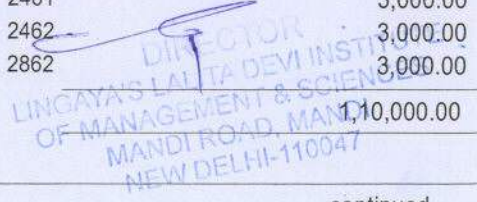 2461 3,000.00
2462 3,000.00
2862 3,000.00
1,10,000.00
DIRECTOR
LINGAYA'S LALITA DEVI INSTITUTE
OF MANAGEMENT & SCIENCES
MANDI ROAD, MANDI
NEW DELHI-110047
continued